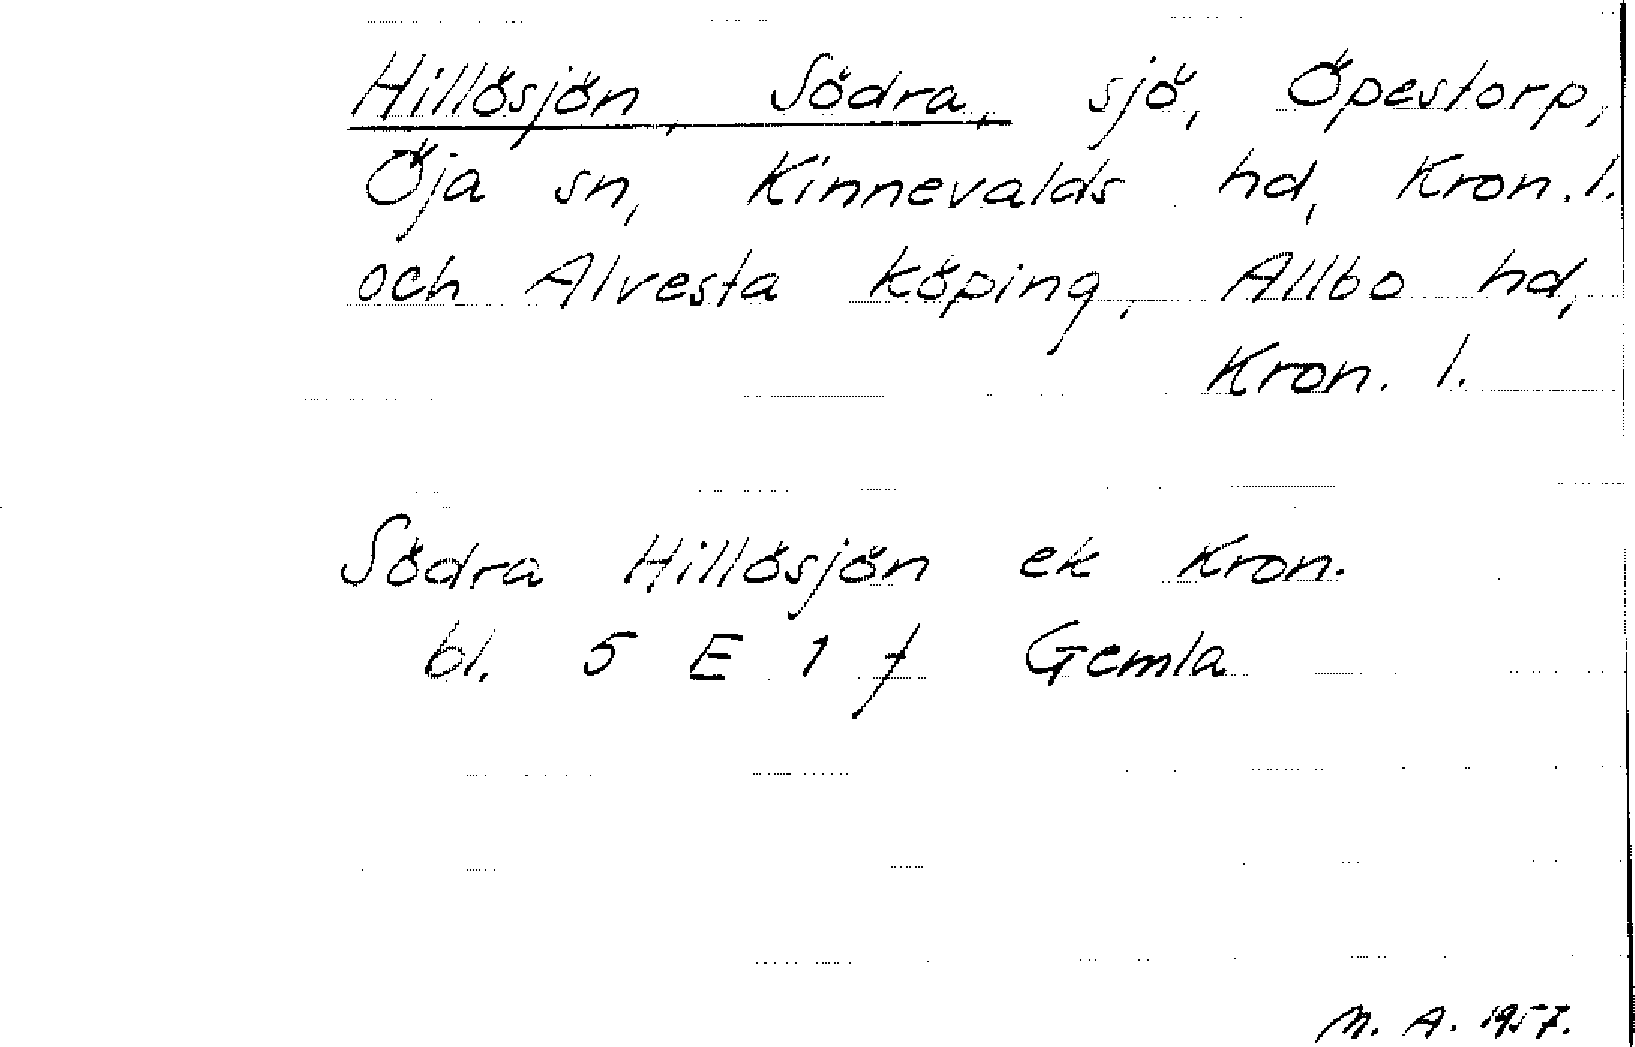 Hillösjön, Södra, sjö, Öpestorp,
Öja sn, Kinnevalds hd, Kron. l.
och Alvesta köping, Allbo hd,
Kron. l.
Södra Hillösjön ek Kron.
bl. 5 E 1 f Gemla
M. A. 1957.